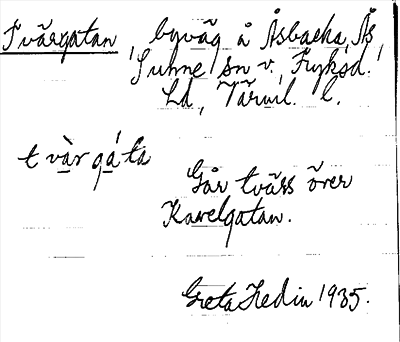 Tvärgatan, byväg å Åsbacka, Ås
Sunne sn v., Fryksd.
Ld, Värml. l.
tvàrgáta
Går tvärs över
Kavelgatan.
Greta Hedin 1935.